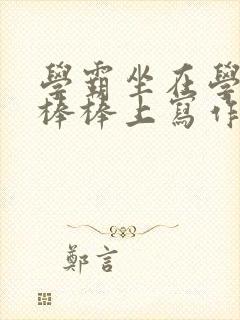 學霸坐在學
棒棒上寫作
鄭言